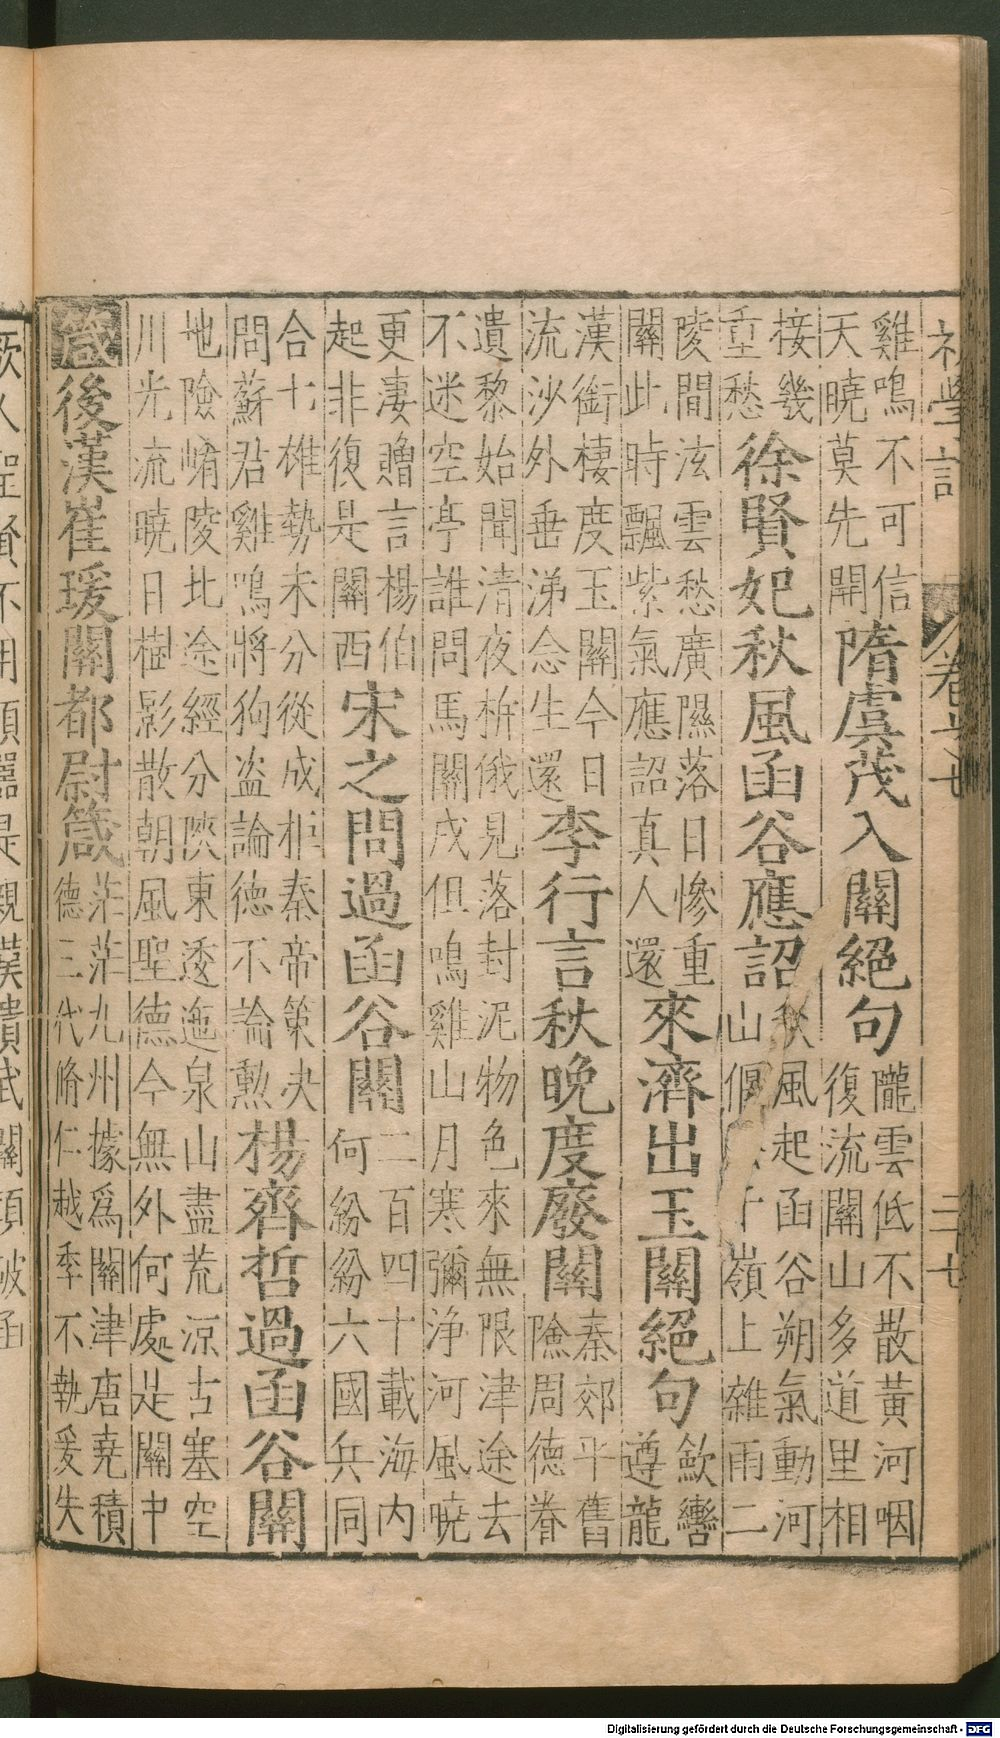 卷之七
雞鳴不可信
天曉莫先開
隋虞茂入關絕句
隴雲低不散黃河咽
復流關山多道里相
接幾
重愁
徐賢妃秋風函谷應詔
秋風起函谷朔氣動河
山偃千嶺上雜雨二
陵間泫雲愁廣隰落日慘重
關此時飄紫氣應詔真人還
來濟出玉關絕句
歛轡
遵龍
漢銜棲度玉關今日
流沙外垂涕念生還
李行言秋晚度廢關
秦郊平舊
險周德眷
遺黎始聞清夜柝俄見落封泥物色來無限津途去
不迷空亭誰問馬關戍但鳴雞山月寒彌淨河風曉
更凄贈言楊伯
起非復是關西
宋之問過函谷關
二百四十載海内
何紛紛六國兵同
合七雄勢未分從成拒秦帝策决
問蘇君雞鳴將狗盗論德不論勲
楊齊哲過函谷關
地險崤陵北途經分陝東逶迤泉山盡荒凉古塞空
川光流曉日樹影散朝風聖德今無外何處是關中
箴
後漢崔瑗關都尉箴
茫茫九州據爲關津唐堯積
德三代脩仁越季不執爰失
Digitalisierung gefördert durch die Deutsche Forschungsgemeinschaft - DFG